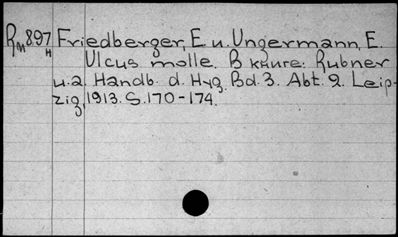 Rм897 Friedberger, E. u. Ungermann, E.
н Ulcus molle. В книге: Rubner
u.a. Handb. d. Hyg. Bd. 3. Abt. 2. Leip-
zig, 1913. S. 170-174.